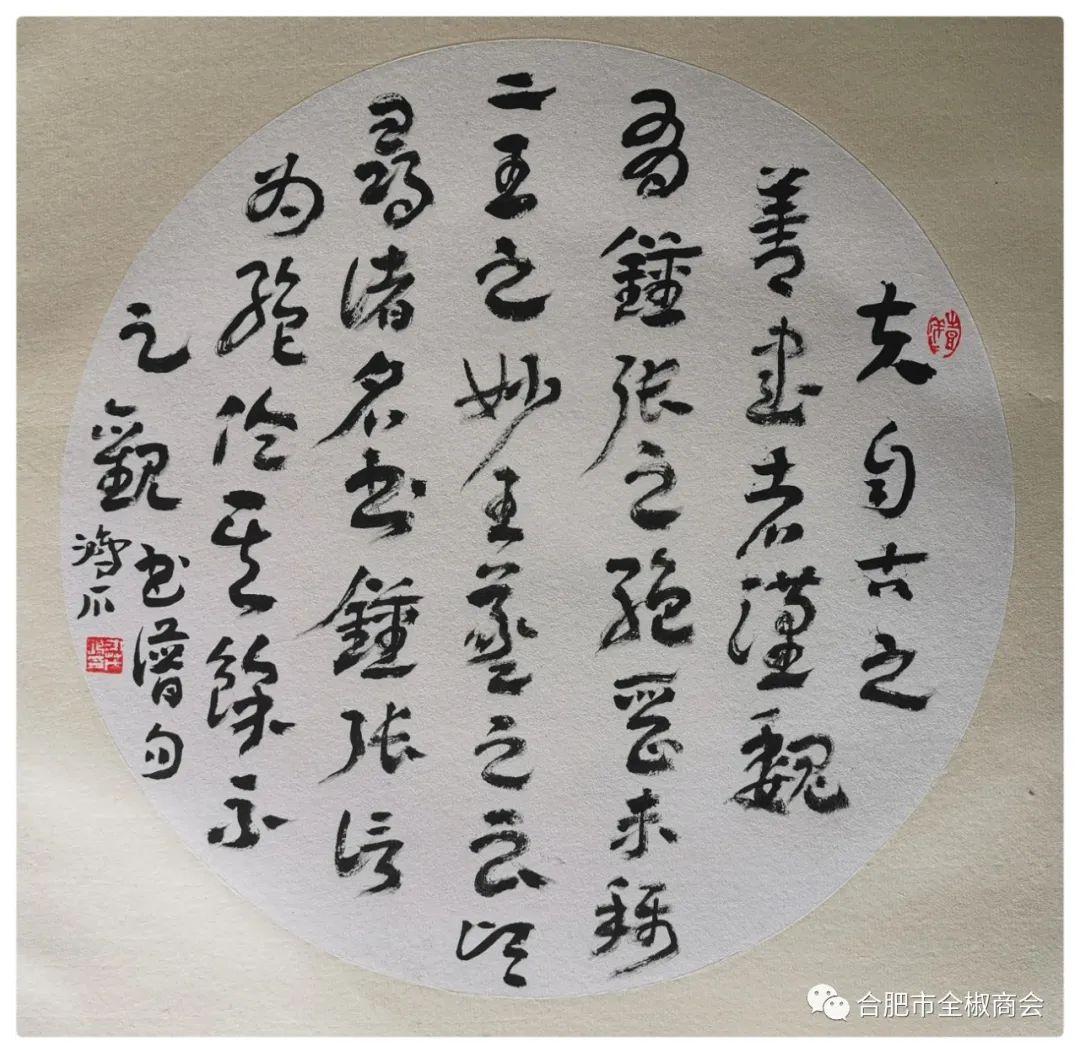 夫自古之
善書者漢魏
有鍾張之絕晉末稱
二王之妙王羲之云頃
尋諸名书鍾張信
为絕倫其餘不
足觀 书譜句
合肥市全椒商会